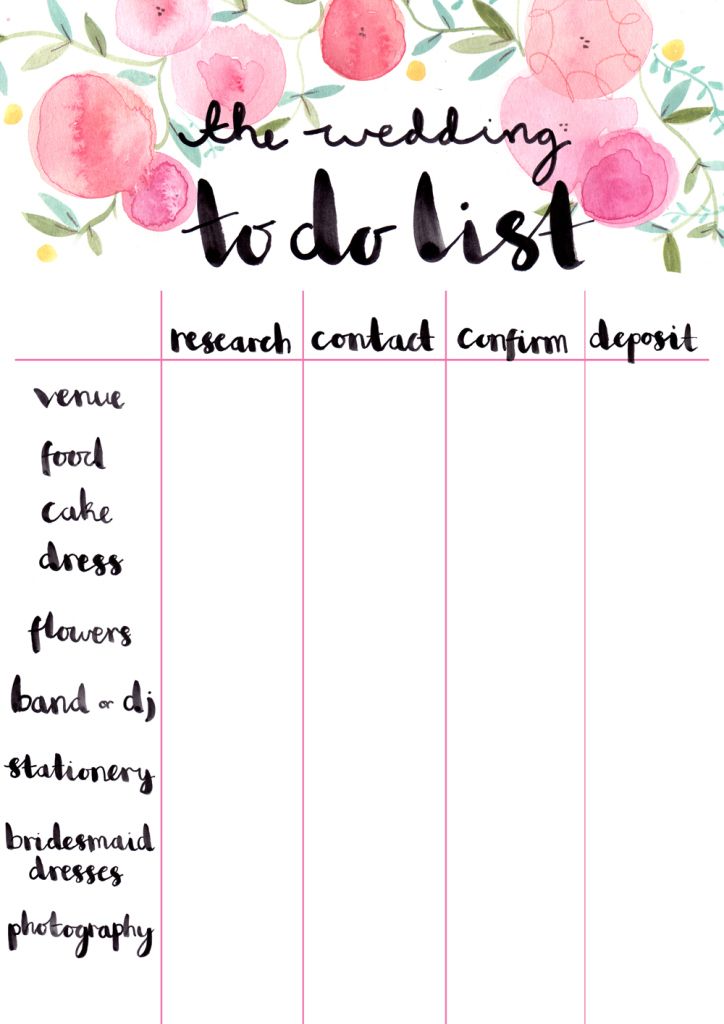 the wedding
to do list
research contact confirm deposit
venue
food
cake
dress
flowers
band or dj
stationery
bridesmaid
dresses
photography